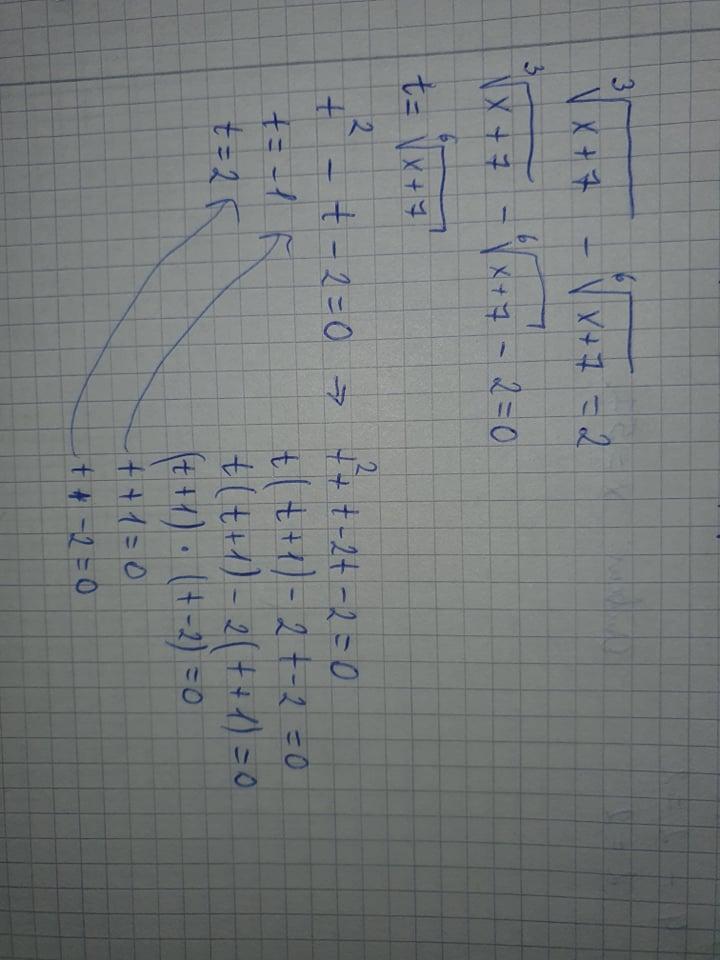 ∛x+7 − ⁶√x+7 = 2
∛x+7 − ⁶√x+7 − 2 = 0
t = ⁶√x+7
t² − t − 2 = 0 → t² + t − 2t − 2 = 0
t = −1
t = 2
t(t+1) − 2t − 2 = 0
t(t+1) − 2(t+1) = 0
(t+1) · (t−2) = 0
t + 1 = 0
t − 2 = 0